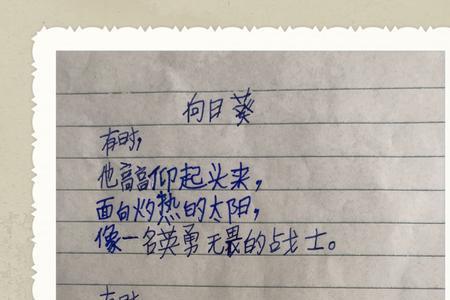 向日葵
有时，
他高高仰起头来，
面白灼热的太阳，
像一名英勇无畏的战士。
有时